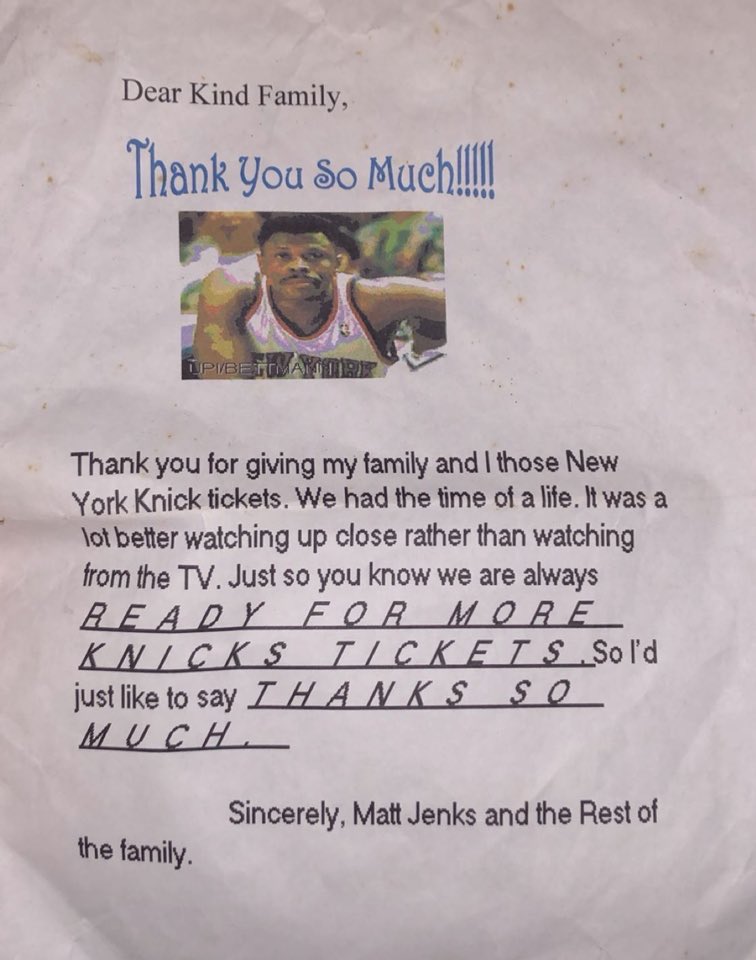 Dear Kind Family,
Thank You So Much!!!!!
UPI/BETTMANN
Thank you for giving my family and I those New
York Knick tickets. We had the time of a life. It was a
lot better watching up close rather than watching
from the TV. Just so you know we are always
READY FOR MORE
KNICKS TICKETS. So I'd
just like to say THANKS SO
MUCH.
Sincerely, Matt Jenks and the Rest of
the family.